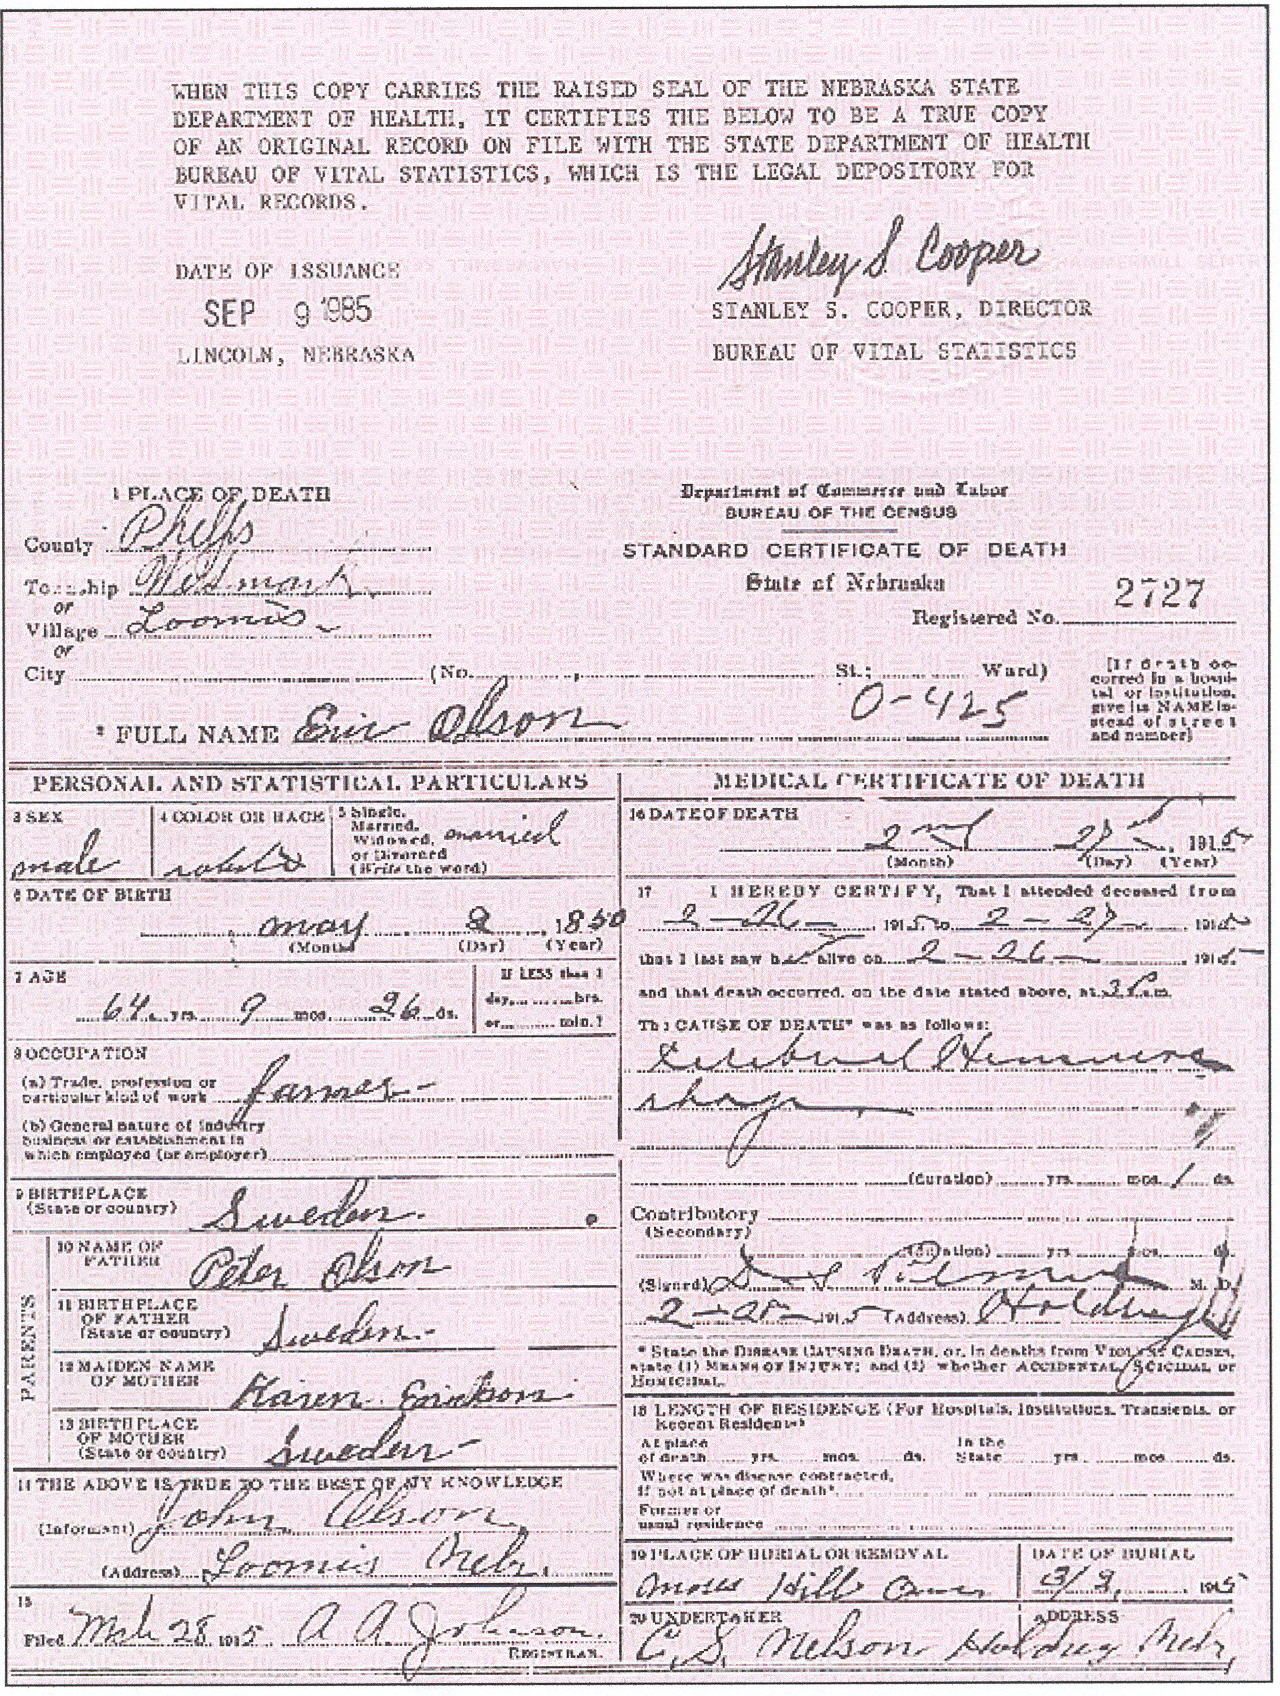 WHEN THIS COPY CARRIES THE RAISED SEAL OF THE NEBRASKA STATE
DEPARTMENT OF HEALTH, IT CERTIFIES THE BELOW TO BE A TRUE COPY
OF AN ORIGINAL RECORD ON FILE WITH THE STATE DEPARTMENT OF HEALTH
BUREAU OF VITAL STATISTICS, WHICH IS THE LEGAL DEPOSITORY FOR
VITAL RECORDS.
Stanley S. Cooper
DATE OF ISSUANCE
SEP 9 1985
LINCOLN, NEBRASKA
STANLEY S. COOPER, DIRECTOR
BUREAU OF VITAL STATISTICS
1 PLACE OF DEATH
County Phelps
Township
or
Village Loomis
or
City (No. St.; Ward)
Department of Commerce and Labor
BUREAU OF THE CENSUS
STANDARD CERTIFICATE OF DEATH
State of Nebraska
Registered No. 2727
[If death occurred in a hospital or institution,
give its NAME instead of street
and number]
0-425
2 FULL NAME Eric Olson
PERSONAL AND STATISTICAL PARTICULARS
3 SEX male
4 COLOR OR RACE white
5 Single,
Married,
Widowed,
or Divorced
(Write the word) married
6 DATE OF BIRTH
may 2, 1850
(Month) (Day) (Year)
7 AGE
64 yrs. 9 mos. 26 ds.
If LESS than 1
day, hrs.
or min.?
8 OCCUPATION
(a) Trade, profession or
particular kind of work farmer
(b) General nature of industry
business or establishment in
which employed (or employer)
9 BIRTHPLACE
(State or country) Sweden
PARENTS
10 NAME OF
FATHER Peter Olson
11 BIRTHPLACE
OF FATHER
(State or country) Sweden
12 MAIDEN NAME
OF MOTHER Karen Erickson
13 BIRTHPLACE
OF MOTHER
(State or country) Sweden
14 THE ABOVE IS TRUE TO THE BEST OF MY KNOWLEDGE
(Informant) John Olson
(Address) Loomis Nebr.
15
Filed Mch 28 1915 A A Johnson
REGISTRAR.
MEDICAL CERTIFICATE OF DEATH
16 DATE OF DEATH
2nd 27, 1915
(Month) (Day) (Year)
17 I HEREBY CERTIFY, That I attended deceased from
2-26-, 1915, to 2-27-, 1915
that I last saw h alive on 2-26-, 1915
and that death occurred, on the date stated above, at m.
The CAUSE OF DEATH* was as follows:
Cerebral Hemmorrhage
(duration) yrs. mos. 1 ds.
Contributory
(Secondary)
(duration) yrs. mos. ds.
(Signed) M. D.
2-28- 1915 (Address) Holdrege
* State the DISEASE CAUSING DEATH, or, in deaths from VIOLENT CAUSES,
state (1) MEANS OF INJURY; and (2) whether ACCIDENTAL, SUICIDAL or
HOMICIDAL.
18 LENGTH OF RESIDENCE (For Hospitals, Institutions, Transients, or
Recent Residents)
At place
of death yrs. mos. ds. In the
State yrs. mos. ds.
Where was disease contracted,
if not at place of death?
Former or
usual residence
19 PLACE OF BURIAL OR REMOVAL
Moses Hill
DATE OF BURIAL
3/2, 1915
20 UNDERTAKER
C. S. Nelson
ADDRESS
Holdreg Nebr,